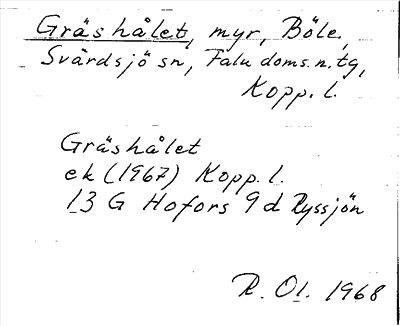 Gräshålet, myr, Böle,
Svärdsjö sn, Falu doms.n.tg,
Kopp. l.
Gräshålet
ek (1967) Kopp. l.
13 G Hofors 9 d Ryssjön
R. Ol. 1968